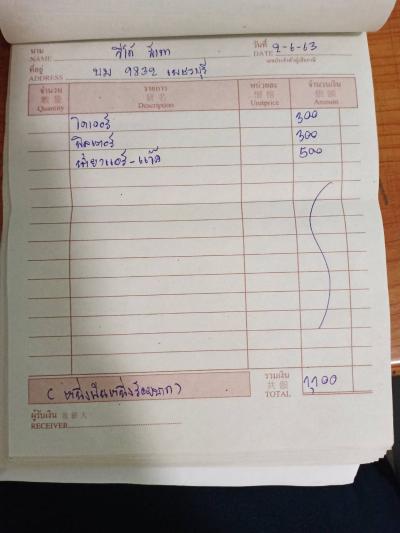 นาม NAME วีโก้ สีเทา วันที่ DATE 9-6-63
เลขประจำตัวผู้เสียภาษี
ที่อยู่ ADDRESS บม 9832 เพชรบุรี
จำนวน 數量 Quantity รายการ 貨名 Description หน่วยละ 價格 Unitprice จำนวนเงิน 銀額 Amount
ไดเออร์ 300
ฟิลเตอร์ 300
น้ำยาแอร์-แก๊ส 500
(หนึ่งพันหนึ่งร้อยบาท) รวมเงิน 共銀 TOTAL 1,100
ผู้รับเงิน 收銀人 RECEIVER